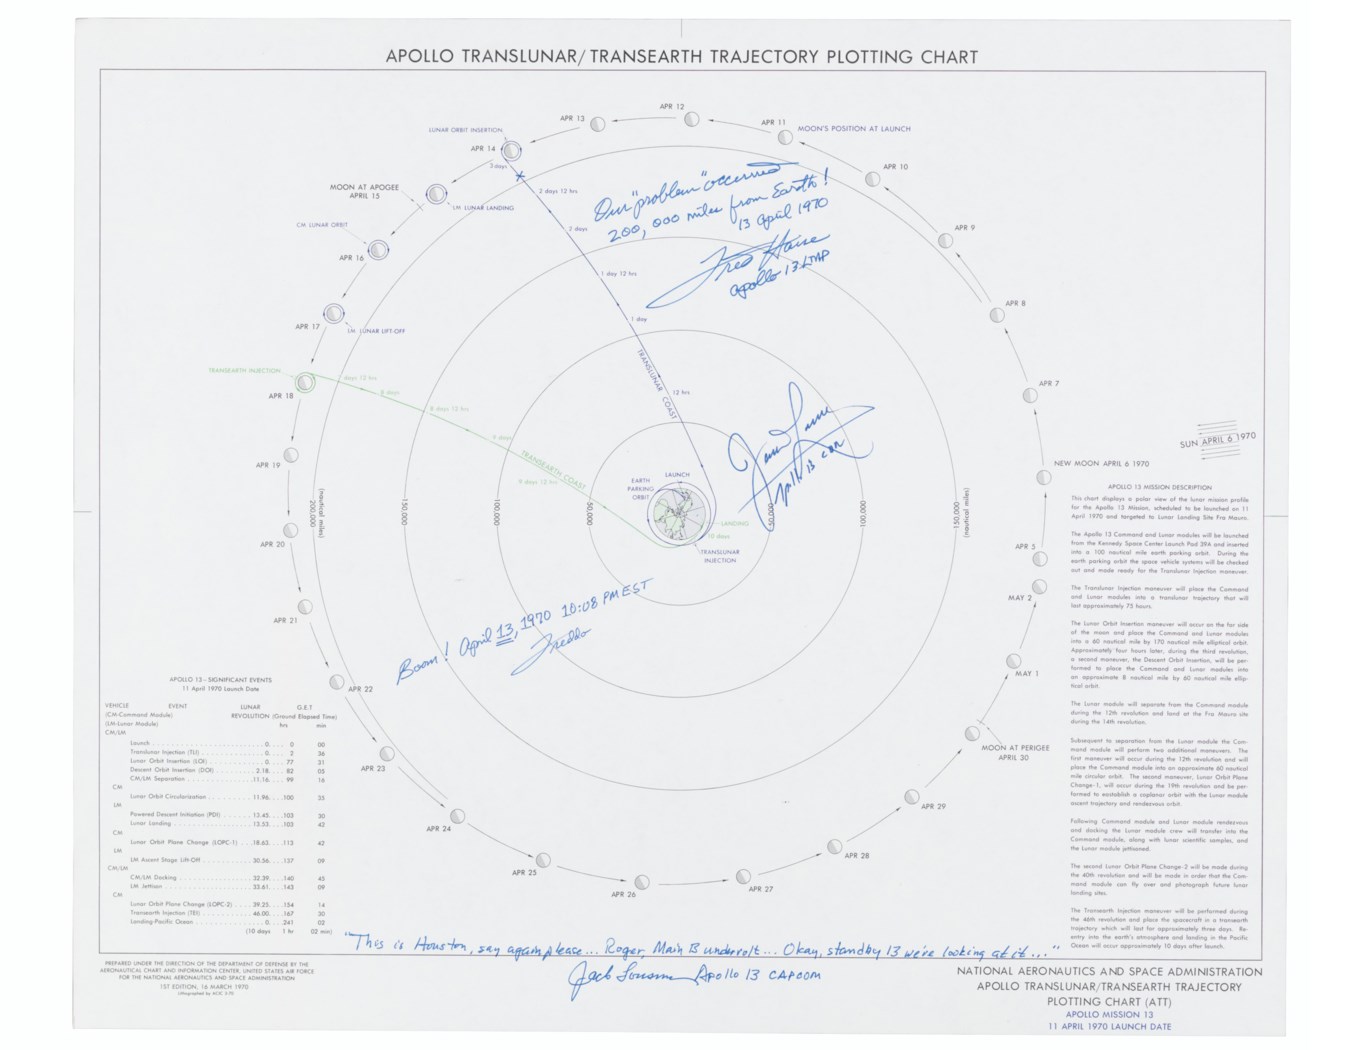 APOLLO TRANSLUNAR/TRANSEARTH TRAJECTORY PLOTTING CHART
APR 12
APR 13
APR 11
MOON'S POSITION AT LAUNCH
LUNAR ORBIT INSERTION
APR 14
3 days
APR 10
MOON AT APOGEE
APRIL 15
LM LUNAR LANDING
2 days 12 hrs
Our "problem" occurred
200,000 miles from Earth!
13 April 1970
Fred Haise
Apollo 13 LMP
CM LUNAR ORBIT
2 days
APR 9
APR 16
1 day 12 hrs
APR 8
APR 17
LM LUNAR LIFT-OFF
1 day
TRANSEARTH INJECTION
days 12 hrs
APR 18
8 days
8 days 12 hrs
TRANSLUNAR COAST
12 hrs
APR 7
Apollo 13 CDR
SUN APRIL 6 1970
9 days
TRANSEARTH COAST
9 days 12 hrs
APR 19
NEW MOON APRIL 6 1970
LAUNCH
EARTH
PARKING
ORBIT
200,000
(nautical miles)
150,000
100,000
50,000
50,000
100,000
150,000
(nautical miles)
LANDING
10 days
TRANSLUNAR
INJECTION
APR 20
APR 5
MAY 2
APR 21
Boom! April 13, 1970 10:08 PM EST
Freddo
APR 22
MAY 1
MOON AT PERIGEE
APRIL 30
APR 23
APR 29
APR 24
APR 28
APR 25
APR 26
APR 27
APOLLO 13 MISSION DESCRIPTION
This chart displays a polar view of the lunar mission profile
for the Apollo 13 Mission, scheduled to be launched on 11
April 1970 and targeted to Lunar Landing Site Fra Mauro.
The Apollo 13 Command and Lunar modules will be launched
from the Kennedy Space Center Launch Pad 39A and inserted
into a 100 nautical mile earth parking orbit. During the
earth parking orbit the space vehicle systems will be checked
out and made ready for the Translunar Injection maneuver.
The Translunar Injection maneuver will place the Command
and Lunar modules into a translunar trajectory that will
last approximately 75 hours.
The Lunar Orbit Insertion maneuver will occur on the far side
of the moon and place the Command and Lunar modules
into a 60 nautical mile by 170 nautical mile elliptical orbit.
Approximately four hours later, during the third revolution,
a second maneuver, the Descent Orbit Insertion, will be per-
formed to place the Command and Lunar modules into
an approximate 8 nautical mile by 60 nautical mile ellip-
tical orbit.
The Lunar module will separate from the Command module
during the 12th revolution and land at the Fra Mauro site
during the 14th revolution.
Subsequent to separation from the Lunar module the Com-
mand module will perform two additional maneuvers. The
first maneuver will occur during the 12th revolution and will
place the Command module into an approximate 60 nautical
mile circular orbit. The second maneuver, Lunar Orbit Plane
Change-1, will occur during the 19th revolution and be per-
formed to establish a coplanar orbit with the Lunar module
ascent trajectory and rendezvous orbit.
Following Command module and Lunar module rendezvous
and docking the Lunar module crew will transfer into the
Command module, along with lunar scientific samples, and
the Lunar module jettisoned.
The second Lunar Orbit Plane Change-2 will be made during
the 40th revolution and will be made in order that the Com-
mand module can fly over and photograph future lunar
landing sites.
The Transearth Injection maneuver will be performed during
the 46th revolution and place the spacecraft in a transearth
trajectory which will last for approximately three days. Re-
entry into the earth's atmosphere and landing in the Pacific
Ocean will occur approximately 10 days after launch.
APOLLO 13-SIGNIFICANT EVENTS
11 April 1970 Launch Date
VEHICLE EVENT LUNAR G.E.T
(CM-Command Module) REVOLUTION (Ground Elapsed Time)
(LM-Lunar Module) hrs min
CM/LM
Launch 0 0 00
Translunar Injection (TLI) 0 2 36
Lunar Orbit Insertion (LOI) 0 77 31
Descent Orbit Insertion (DOI) 2.18 82 05
CM/LM Separation 11.16 99 16
CM
Lunar Orbit Circularization 11.96 100 35
LM
Powered Descent Initiation (PDI) 13.45 103 30
Lunar Landing 13.53 103 42
CM
Lunar Orbit Plane Change (LOPC-1) 18.63 113 42
LM
LM Ascent Stage Lift-Off 30.56 137 09
CM/LM
CM/LM Docking 32.39 140 45
LM Jettison 33.61 143 09
CM
Lunar Orbit Plane Change (LOPC-2) 39.25 154 14
Transearth Injection (TEI) 46.00 167 30
Landing-Pacific Ocean 0 241 02
(10 days 1 hr 02 min)
"This is Houston, say again please... Roger, Main B undervolt... Okay, standby 13 we're looking at it..."
Jack Lousma Apollo 13 CAPCOM
PREPARED UNDER THE DIRECTION OF THE DEPARTMENT OF DEFENSE BY THE
AERONAUTICAL CHART AND INFORMATION CENTER, UNITED STATES AIR FORCE
FOR THE NATIONAL AERONAUTICS AND SPACE ADMINISTRATION
1ST EDITION, 16 MARCH 1970
Lithographed by ACIC 3-70
NATIONAL AERONAUTICS AND SPACE ADMINISTRATION
APOLLO TRANSLUNAR/TRANSEARTH TRAJECTORY
PLOTTING CHART (ATT)
APOLLO MISSION 13
11 APRIL 1970 LAUNCH DATE